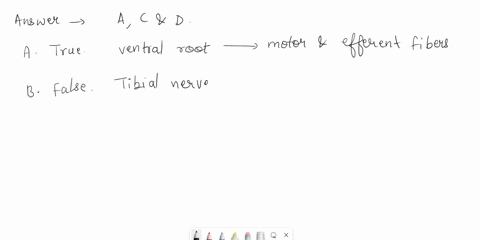 Answer → A, C & D.
A. True. ventral root → motor & efferent fibers
B. False. Tibial nerve